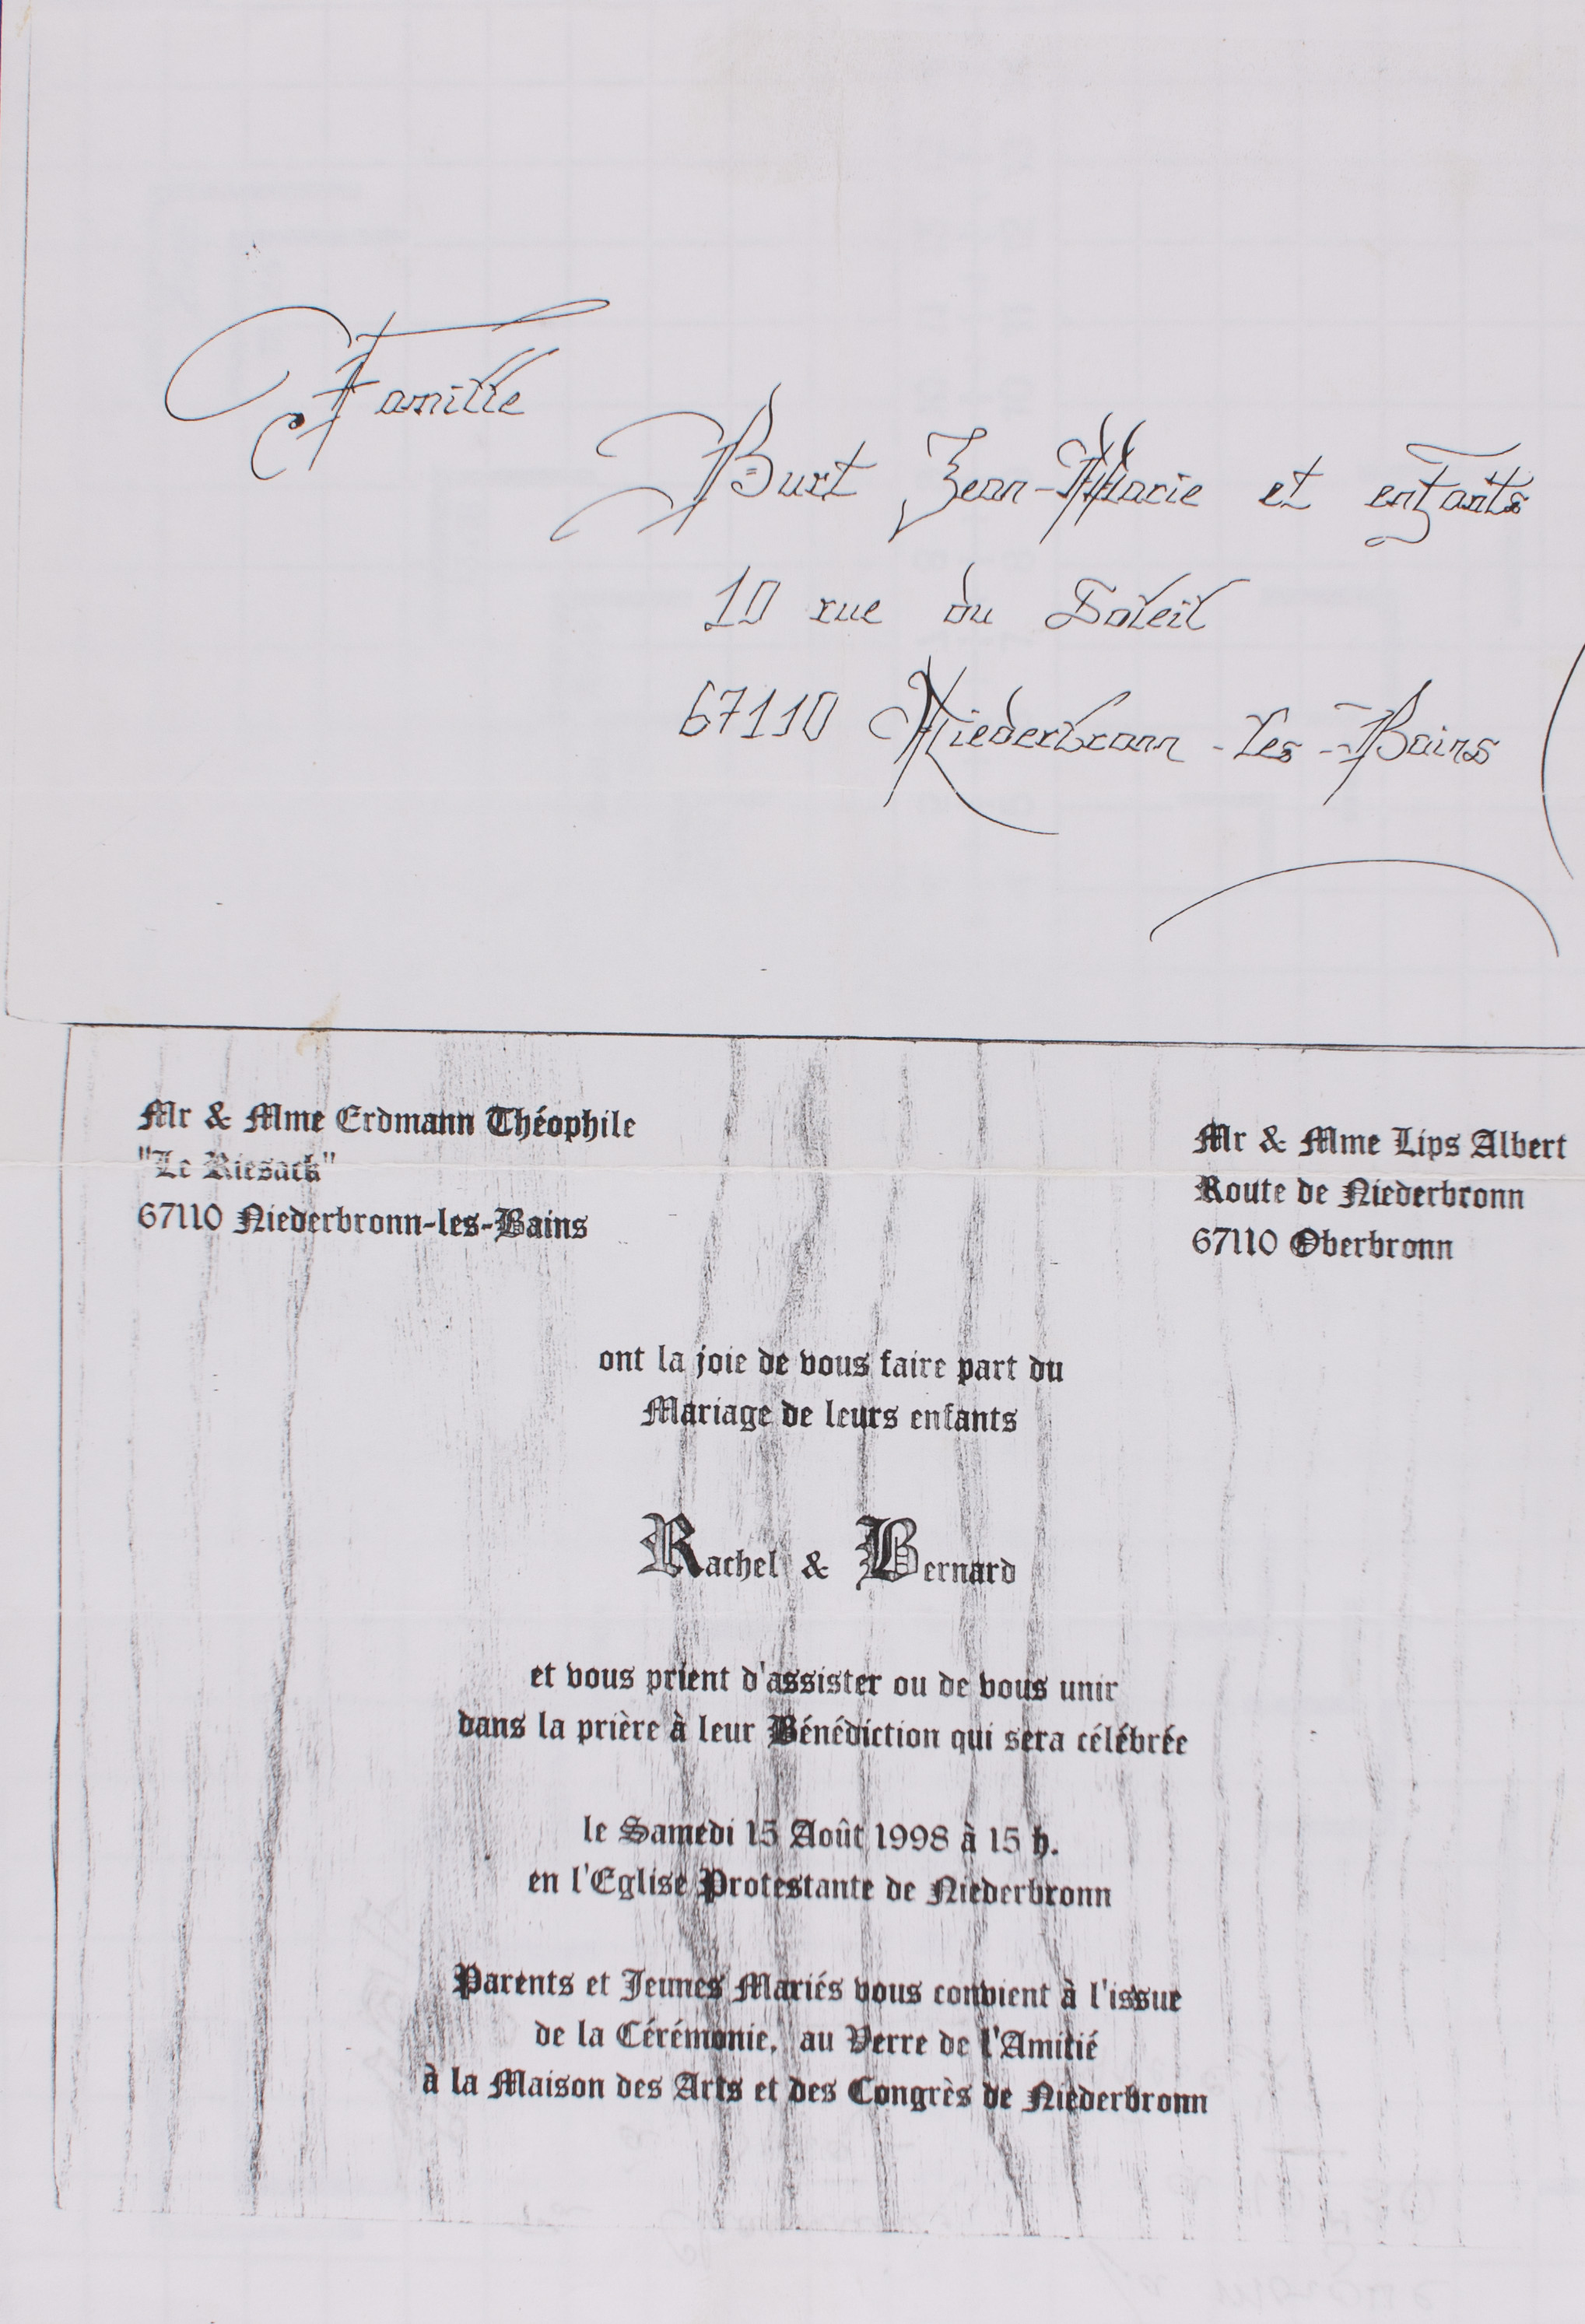 Famille
Burt Jean-Marie et enfants
10 rue du Soleil
67110 Niederbronn-les-Bains
Mr & Mme Erdmann Théophile
"Le Riesack"
67110 Niederbronn-les-Bains
Mr & Mme Lips Albert
Route de Niederbronn
67110 Oberbronn
ont la joie de vous faire part du
Mariage de leurs enfants
Rachel & Bernard
et vous prient d'assister ou de vous unir
dans la prière à leur Bénédiction qui sera célébrée
le Samedi 15 Août 1998 à 15 h.
en l'Eglise Protestante de Niederbronn
Parents et Jeunes Mariés vous convient à l'issue
de la Cérémonie, au Verre de l'Amitié
à la Maison des Arts et des Congrès de Niederbronn